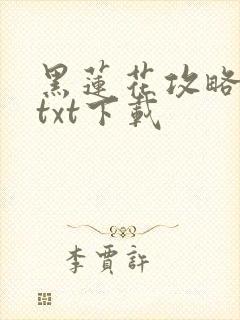 黑蓮花攻略
txt下載
李賈許